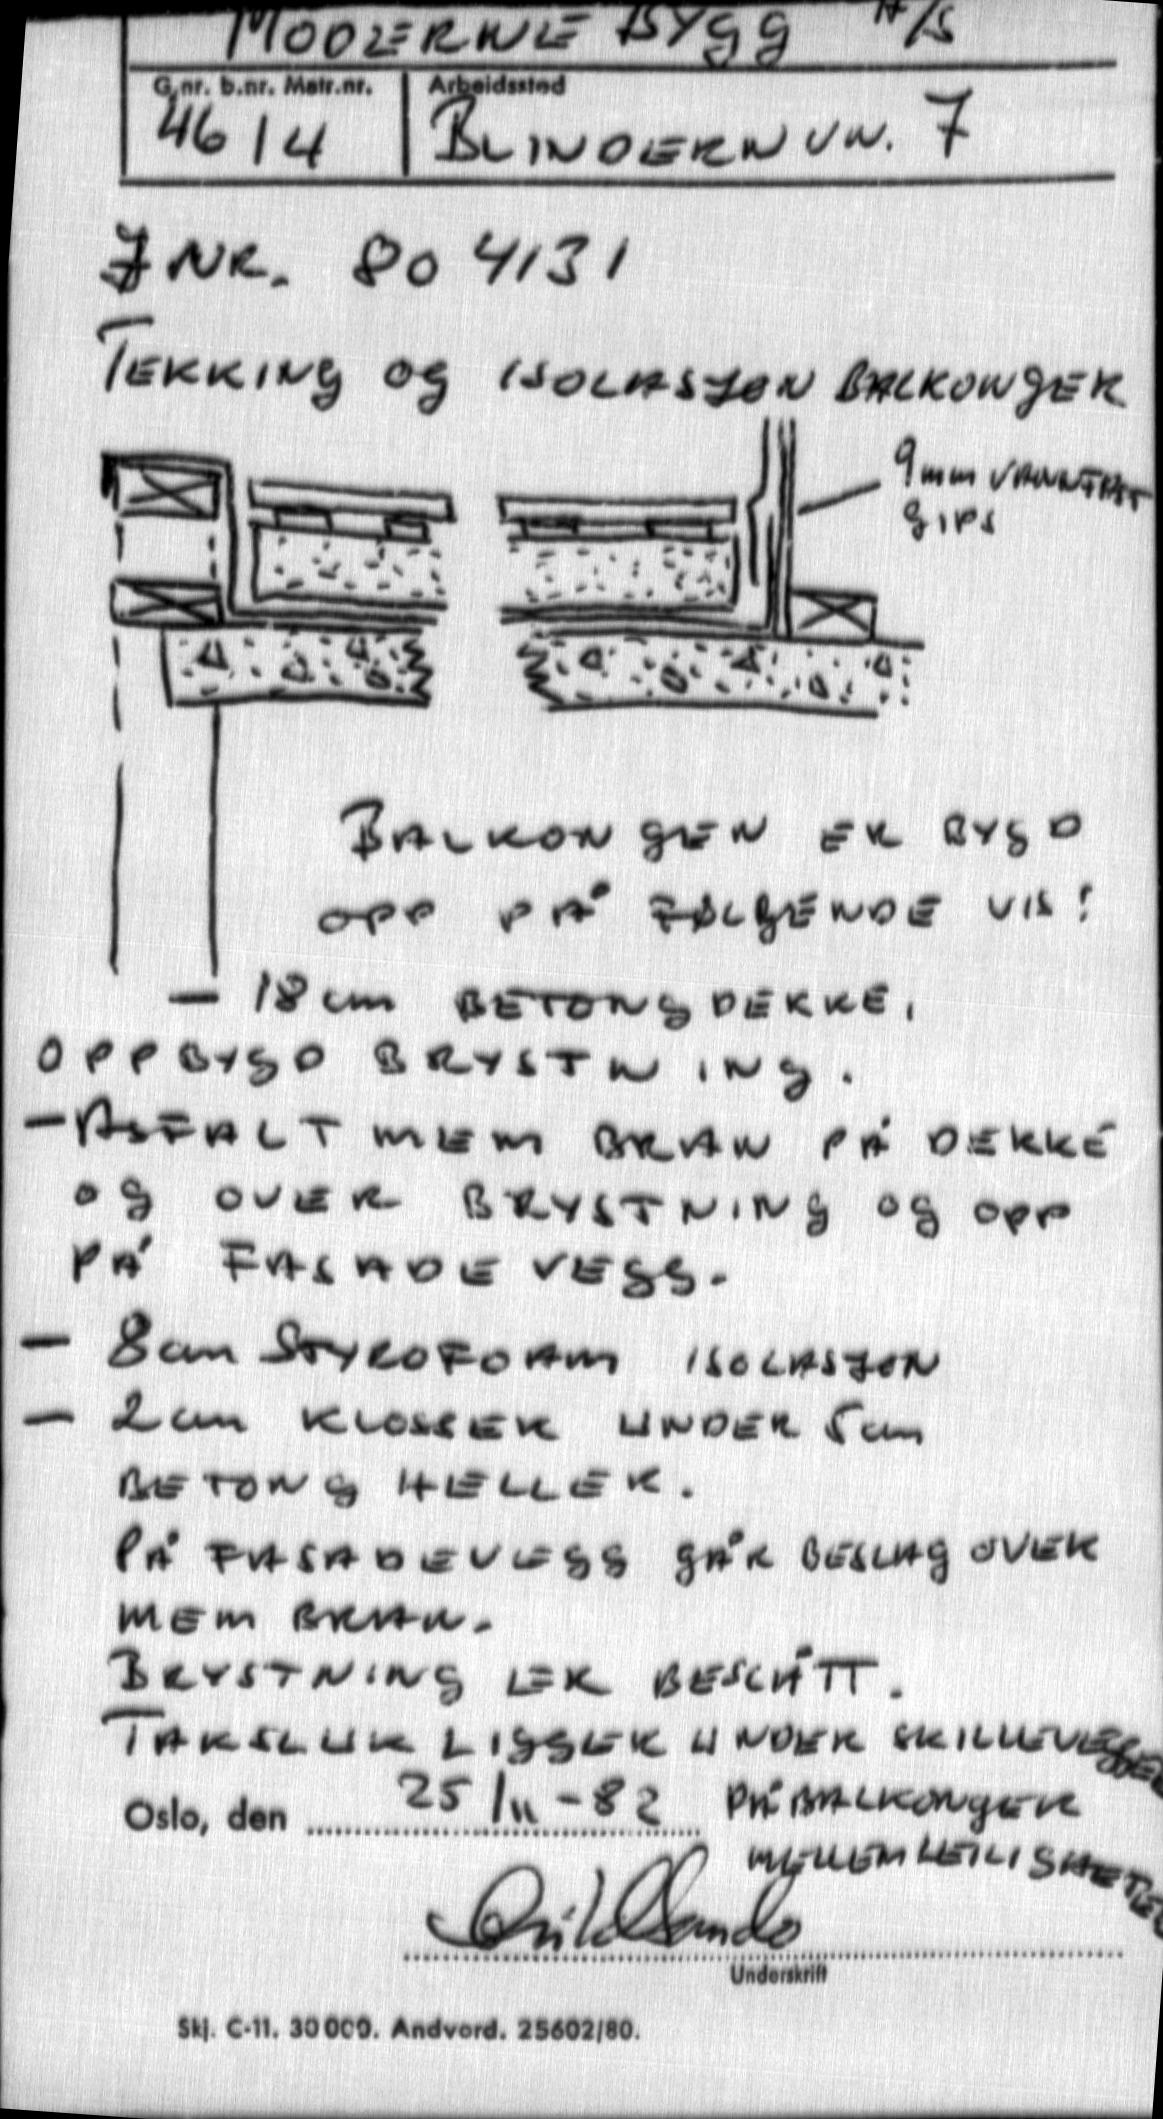 MODERNE BYGG A/S
G.nr. b.nr. Matr.nr. Arbeidssted
46/4 BLINDERNVN. 7
J NR. 804131
TEKKING OG ISOLASJON BALKONGER
9mm VANNTETT
GIPS
BALKONGEN ER BYGD
OPP PÅ FØLGENDE VIS:
- 18 cm BETONGDEKKE,
OPPBYGD BRYSTNING.
- ASFALTMEMBRAN PÅ DEKKE
OG OVER BRYSTNING OG OPP
PÅ FASADEVEGG.
- 8cm STYROFOAM ISOLASJON
- 2cm KLOSSER UNDER 5cm
BETONGHELLER.
PÅ FASADEVEGG GÅR BESLAG OVER
MEMBRAN.
BRYSTNING ER BESLÅTT.
TAKSLUK LIGGER UNDER SKILLEVEGGER
PÅ BALKONGER
MELLEM LEILIGHETER
Oslo, den 25/11-82
Underskrift
Skj. C-11. 30 000. Andvord. 25602/80.